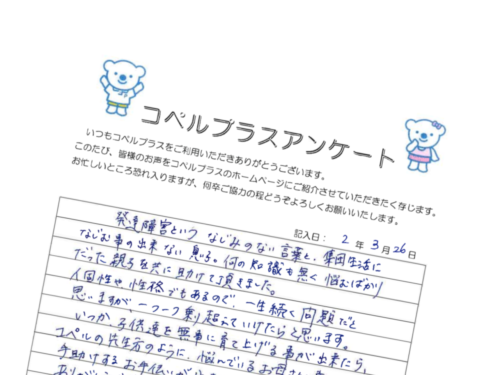 コペルプラスアンケート
いつもコペルプラスをご利用いただきありがとうございます。
このたび、皆様のお声をコペルプラスのホームページにご紹介させていただきたく存じます。
お忙しいところ恐れ入りますが、何卒ご協力の程どうぞよろしくお願いいたします。
記入日： 2 年 3 月 26 日
発達障害という なじみのない言葉と、集団生活に
なじむ事の出来ない息子。何の知識も無く 悩むばかり
だった親子を共に助けて頂きました。
個性や性格でもあるので、一生続く問題だと
思いますが、一つ一つ乗り超えていけたらと思います。
いつか、子供達を無事に育て上げる事が出来たら、
コペルの先生方のように、悩んでいるお母さん
手助けするお手伝いが